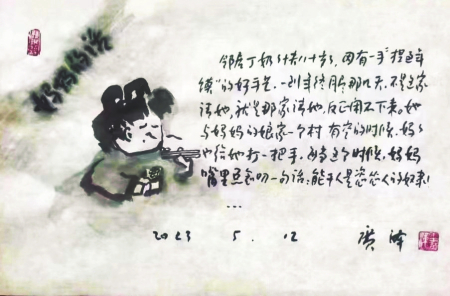 妈妈的话
邻居丁奶奶八十多岁，因有一手“捏过年
馍”的好手艺，一到年终月那几天，不是这家
请她，就是那家请她，反正闲不下来。她
与妈妈的娘家一个村，有空的时候，妈妈
也给她打一把手，每当这个时候，妈妈
嘴里总念叨一句话：能干人是
人的奴隶
...
2023 5. 12